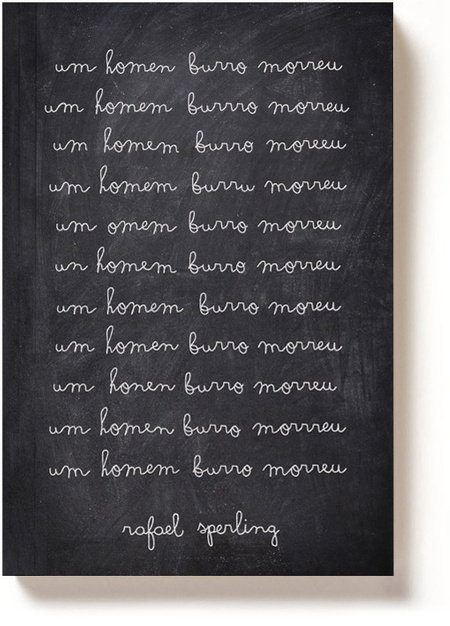 um homen burro morreu
um homem burrro morreu
um homem burro moreeu
um homem burru morreu
um omem burro morreu
un homem burro morreu
um homem burro moreu
um homen burro morreu
um honen burro morreu
um homen burro morrreu
um homem burro morreu
rafael sperling